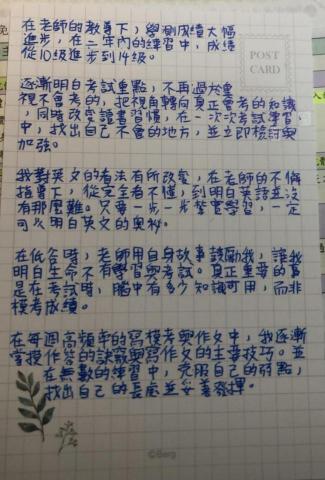 在老師的教導下，學測成績大幅
進步，在三年內的練習中，成績
從10級進步到14級。
POST
CARD
逐漸明白考試重點，不再過於重
視不會考的，把視角轉向真正會考的知識
，同時改變讀書習慣，在一次次考試學習
中，找出自己不會的地方，並立即檢討與
加強。
我對英文的看法有所改變，在老師的不倦
指導下，從完全看不懂，到明白英語並沒
有那麼難。只要一步一步紮實學習，一定
可以明白英文的奧祕。
在低谷時，老師用自身故事鼓勵我，讓我
明白生命不只有學習與考試。真正重要的事
是在考試時，腦中有多少知識可用，而非
模考成績。
在每週高頻率的寫模考與作文中，我逐漸
掌握作答的訣竅與寫作文的主要技巧。並
在無數的練習中，克服自己的弱點，
找出自己的長處並妥善發揮。
©Berg